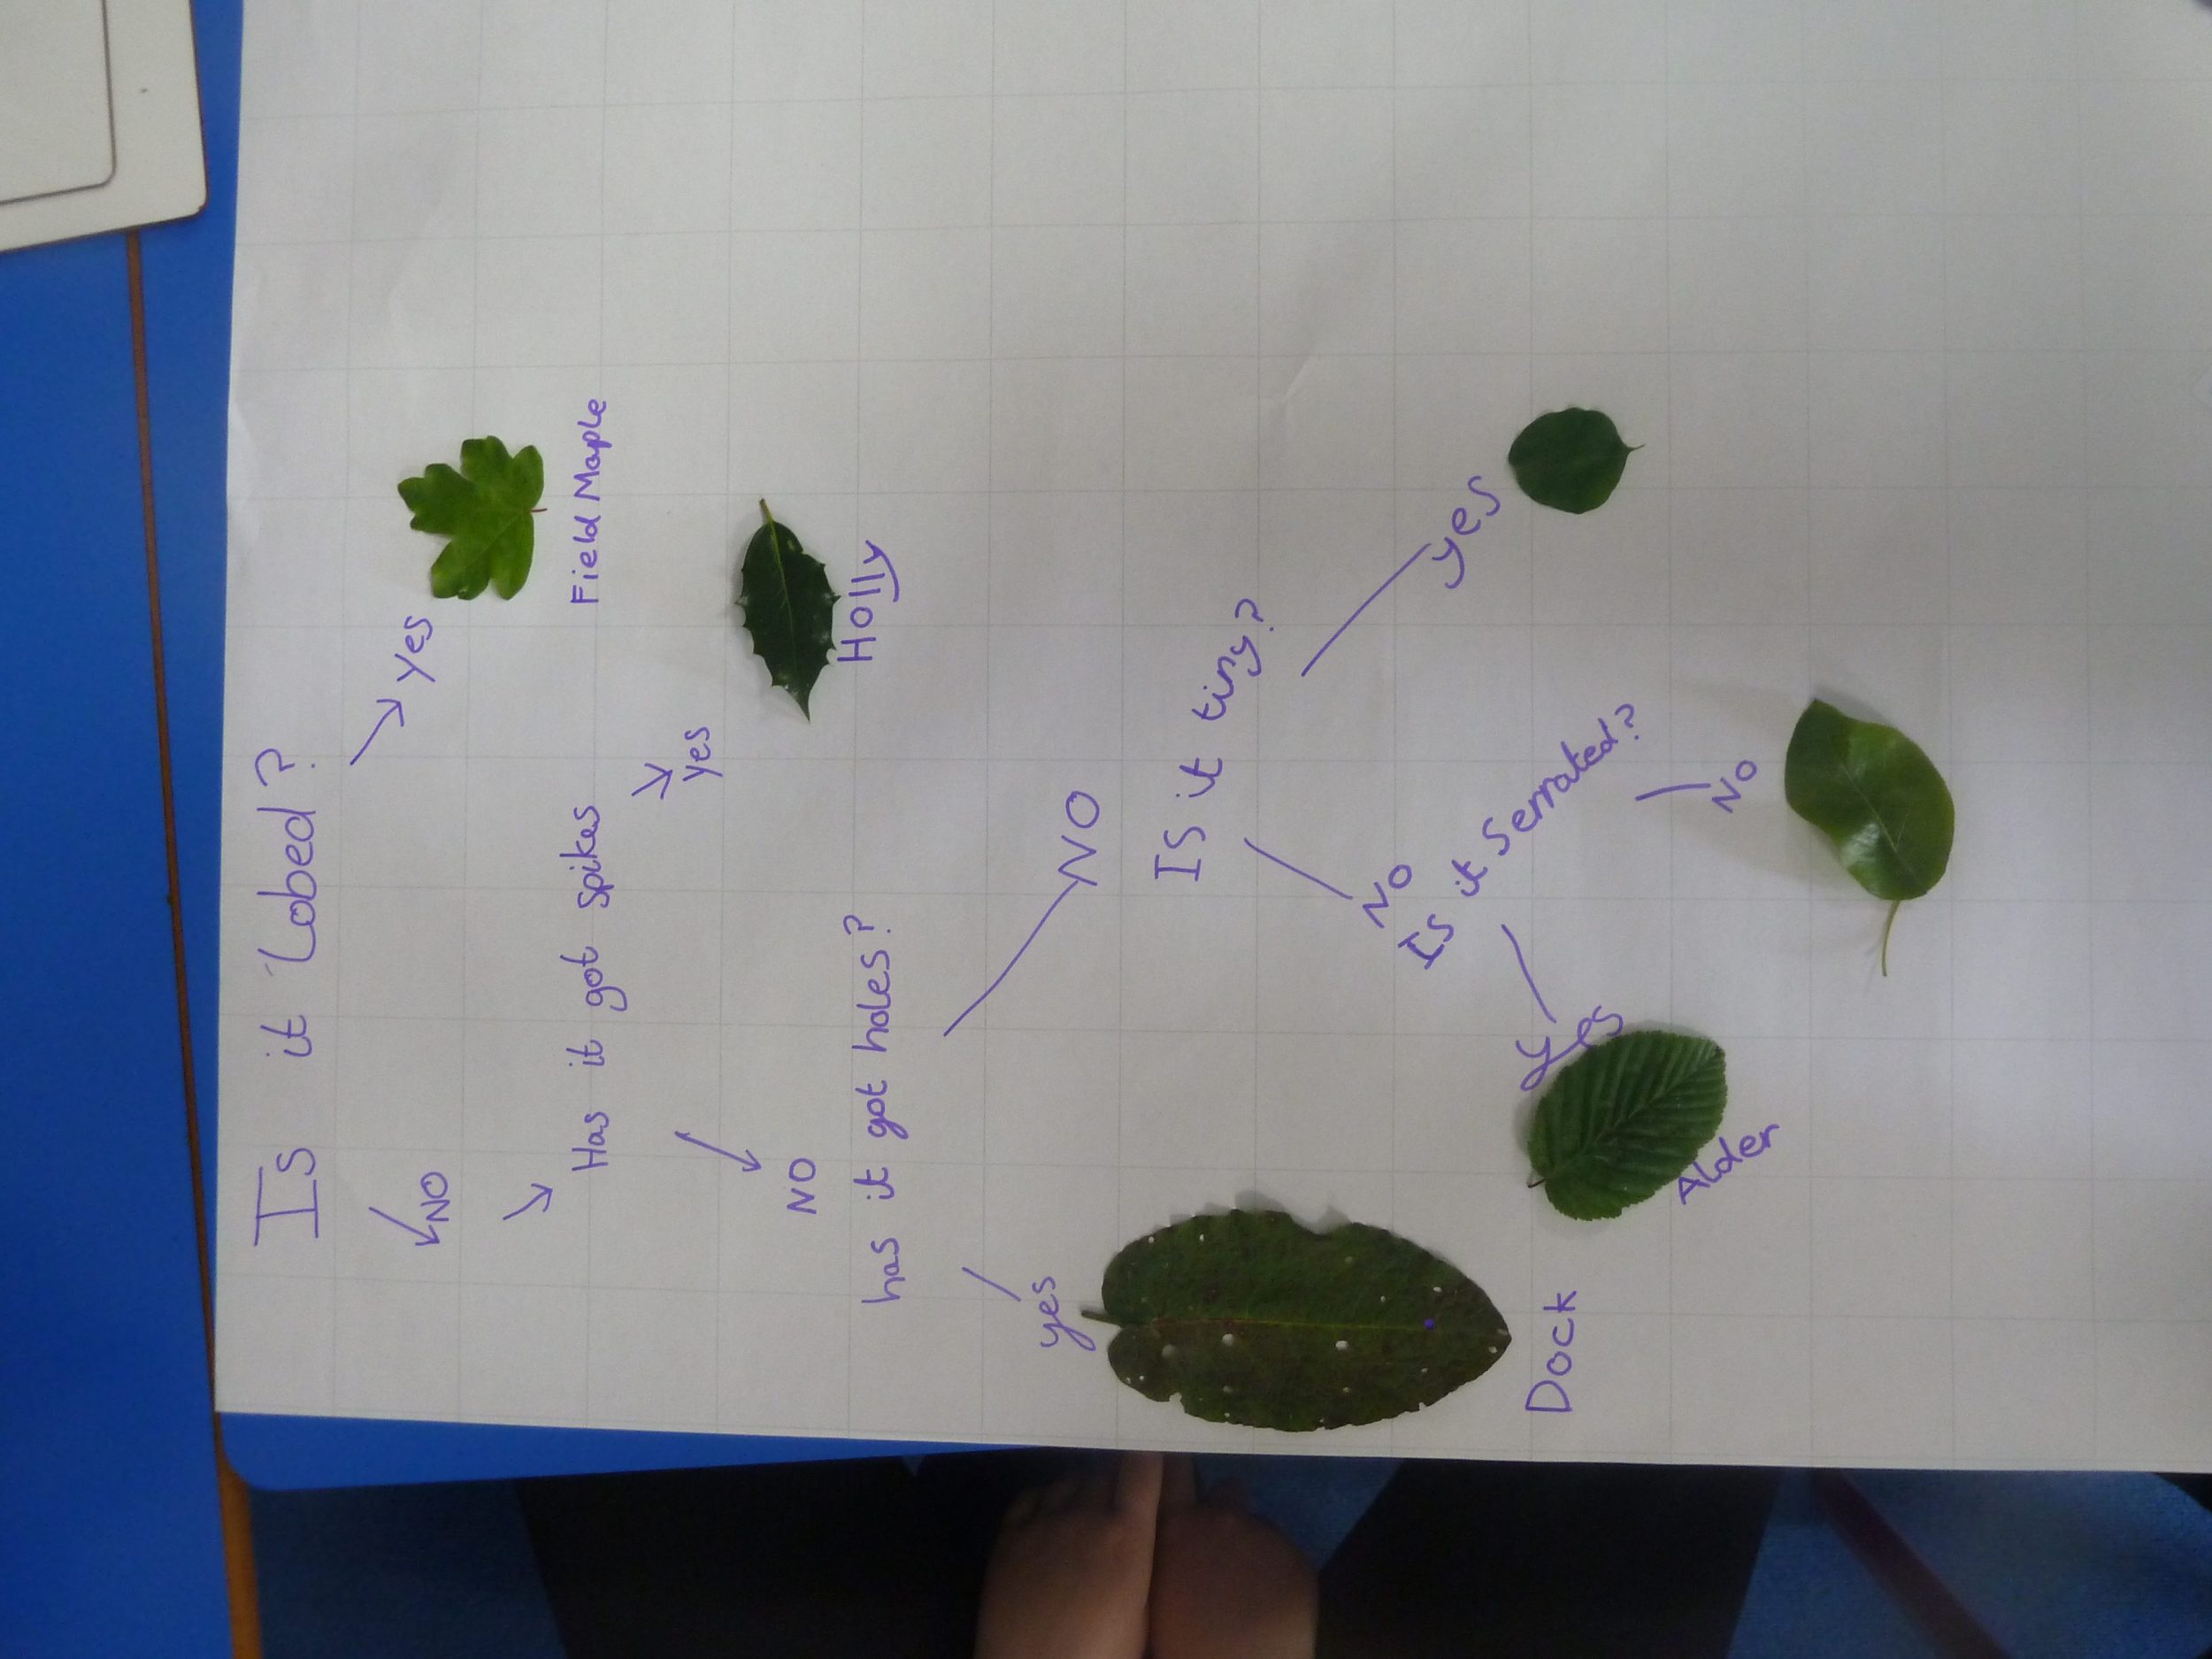 Is it Lobed?
NO
Yes
Field Maple
Has it got spikes
NO
yes
Holly
has it got holes?
yes
NO
Dock
Is it tiny?
No
yes
Is it Serrated?
Yes
No
Alder